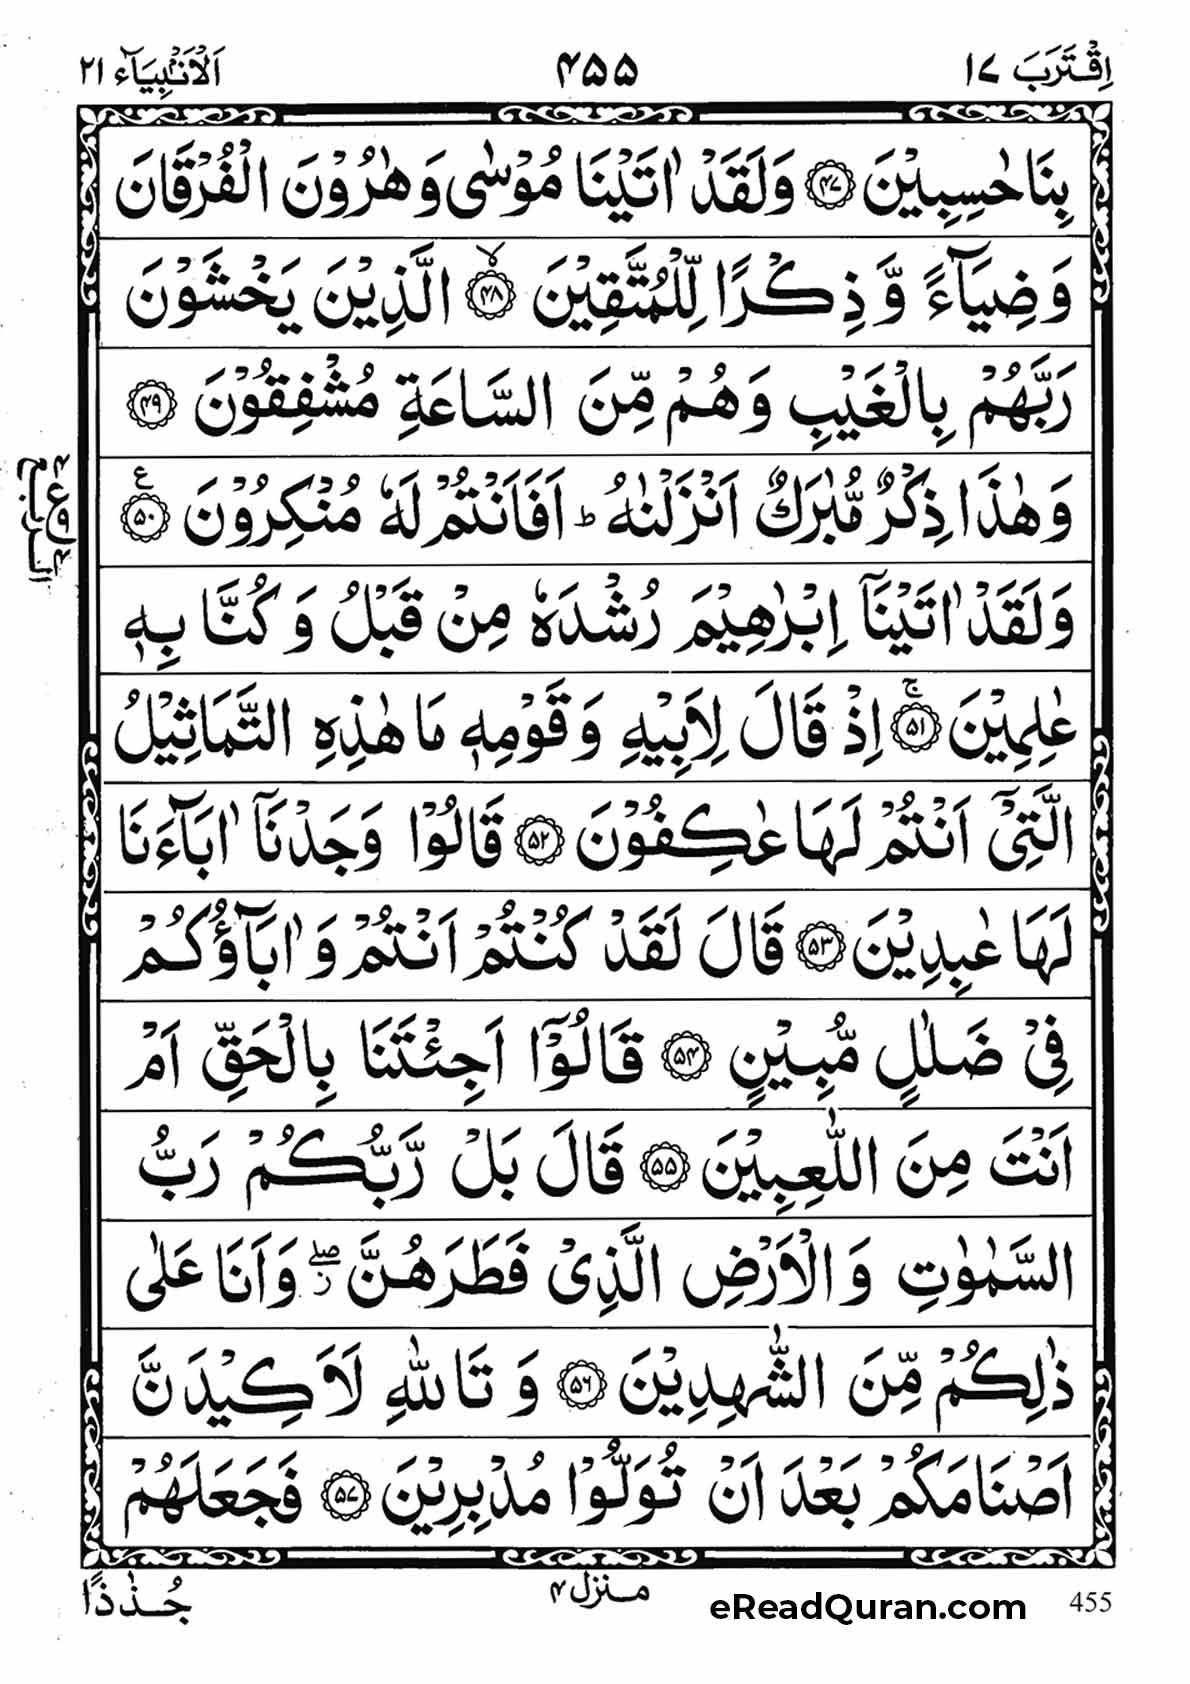 اِقْتَرَبَ ١٧ ۴۵۵ اَلْاَنْۢبِيَآء ٢١
بِنَا حٰسِبِيْنَ ﴿۴۷﴾ وَلَقَدْ اٰتَيْنَا مُوْسٰى وَهٰرُوْنَ الْفُرْقَانَ
وَضِيَآءً وَّ ذِكْرًا لِّلْمُتَّقِيْنَ ﴿۴۸﴾ۙ الَّذِيْنَ يَخْشَوْنَ
رَبَّهُمْ بِالْغَيْبِ وَهُمْ مِّنَ السَّاعَةِ مُشْفِقُوْنَ ﴿۴۹﴾
وَهٰذَا ذِكْرٌ مُّبٰرَكٌ اَنْزَلْنٰهُ ؕ اَفَاَنْتُمْ لَهٗ مُنْكِرُوْنَ ﴿۵۰﴾ ع
وَلَقَدْ اٰتَيْنَاۤ اِبْرٰهِيْمَ رُشْدَهٗ مِنْ قَبْلُ وَ كُنَّا بِهٖ
عٰلِمِيْنَ ﴿۵۱﴾ۚ اِذْ قَالَ لِاَبِيْهِ وَ قَوْمِهٖ مَا هٰذِهِ التَّمَاثِيْلُ
الَّتِيْۤ اَنْتُمْ لَهَا عٰكِفُوْنَ ﴿۵۲﴾ قَالُوْا وَجَدْنَاۤ اٰبَآءَنَا
لَهَا عٰبِدِيْنَ ﴿۵۳﴾ قَالَ لَقَدْ كُنْتُمْ اَنْتُمْ وَ اٰبَآؤُكُمْ
فِيْ ضَلٰلٍ مُّبِيْنٍ ﴿۵۴﴾ قَالُوْۤا اَجِئْتَنَا بِالْحَقِّ اَمْ
اَنْتَ مِنَ اللّٰعِبِيْنَ ﴿۵۵﴾ قَالَ بَلْ رَّبُّكُمْ رَبُّ
السَّمٰوٰتِ وَ الْاَرْضِ الَّذِيْ فَطَرَهُنَّ ۖ ز وَ اَنَا عَلٰى
ذٰلِكُمْ مِّنَ الشّٰهِدِيْنَ ﴿۵۶﴾ وَ تَاللّٰهِ لَاَكِيْدَنَّ
اَصْنَامَكُمْ بَعْدَ اَنْ تُوَلُّوْا مُدْبِرِيْنَ ﴿۵۷﴾ فَجَعَلَهُمْ
جُذٰذًا منزل ۴ eReadQuran.com 455